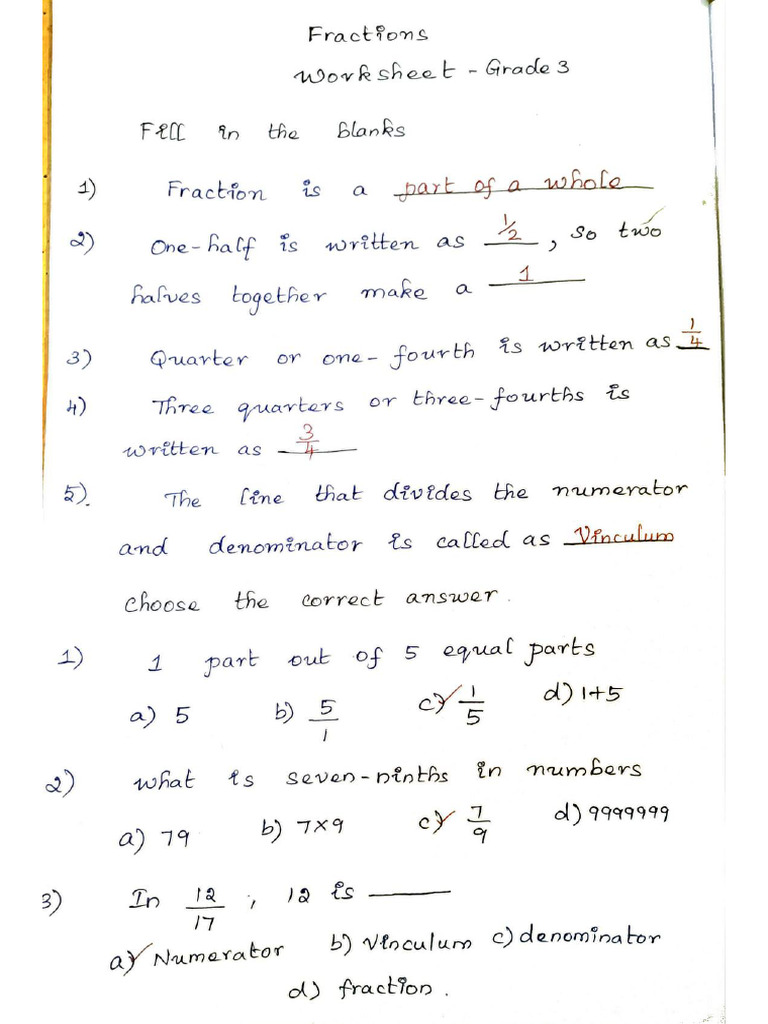 Fractions
Worksheet - Grade 3
Fill in the blanks
1) Fraction is a part of a whole
2) One-half is written as 1/2, so two
halves together make a 1
3) Quarter or one-fourth is written as 1/4
4) Three quarters or three-fourths is
written as 3/4
5). The line that divides the numerator
and denominator is called as Vinculum
choose the correct answer.
1) 1 part out of 5 equal parts
a) 5 b) 5/1 c) ✓ 1/5 d) 1+5
2) what is seven-ninths in numbers
a) 79 b) 7×9 c) ✓ 7/9 d) 9999999
3) In 12/17, 12 is ______
a) ✓ Numerator b) Vinculum c) denominator
d) fraction.